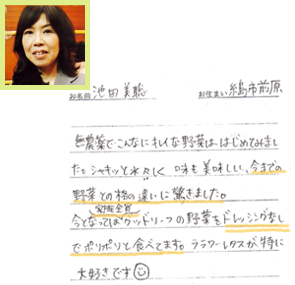 お名前 池田 美聡 お住まい 糸島市前原
無農薬でこんなにキレイな野菜は、はじめてみまし
た。シャキッと水々しく 味も美味しい、今までの
野菜との格の違いに驚きました。
家族全員
今となってはグッドリーフの野菜をドレッシングなし
でポリポリと食べてます。フラワーレタスが特に
大好きです